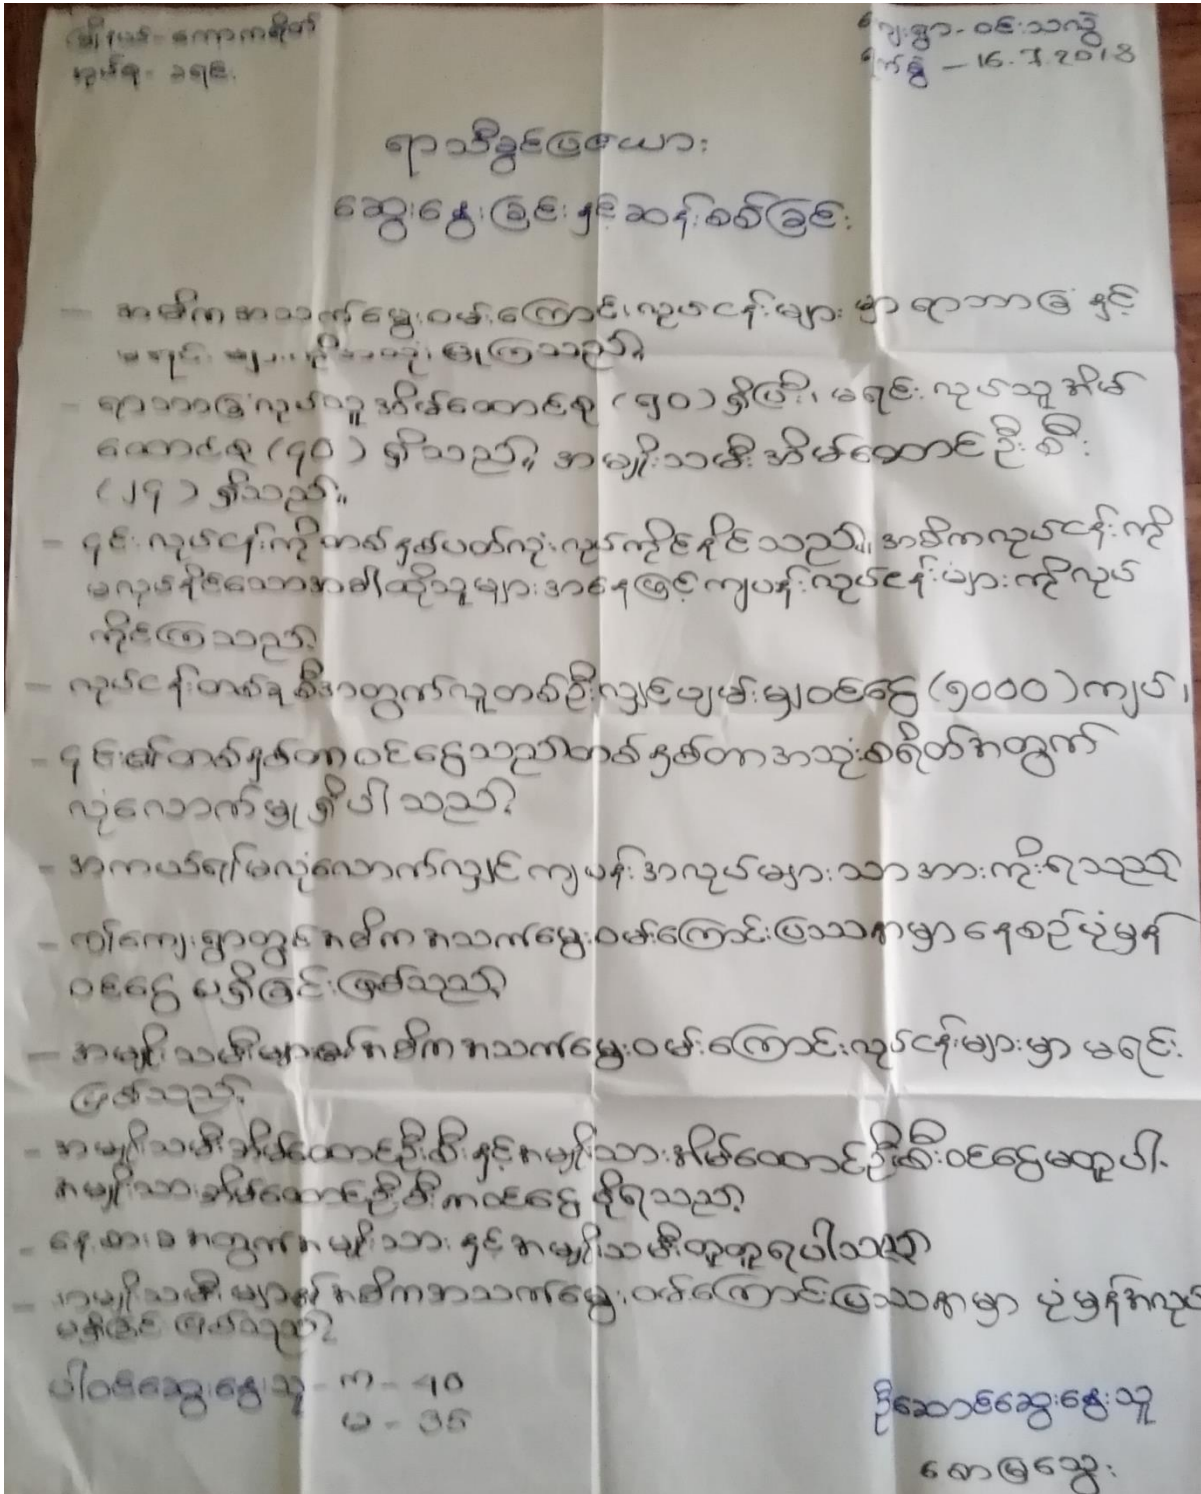 မြို့နယ်- ကော့ကရိတ်
ကျေးရွာ - ဝင်းသလွဲ
ရက်စွဲ - 16.7.2018
ရာသီခွင်ပြဇယား
ဆွေးနွေးခြင်းနှင့်ဆန်းစစ်ခြင်း
- အဓိကအသက်မွေးဝမ်းကြောင်းလုပ်ငန်းများမှာ ရာဘာခြံ နှင့်
မရင်း များ ဦး ပြုကြသည်။
- ရာဘာခြံလုပ်သူအိမ်ထောင်စု (၅၀) ရှိပြီး၊ မရင်း လုပ်သူအိမ်
ထောင်စု (၄၀) ရှိသည်။ အမျိုးသမီးအိမ်ထောင်ဦးစီး
(၂၄) ရှိသည်။
- ၎င်းလုပ်ငန်းကိုတစ်နှစ်ပတ်လုံးလုပ်ကိုင်နိုင်သည်။ အဓိကလုပ်ငန်းကို
မလုပ်နိုင်သောအခါထိုသူများအနေဖြင့်ကျပန်းလုပ်ငန်းများကိုလုပ်
ကိုင်ကြသည်။
- လုပ်ငန်းတစ်ခုစီအတွက်လူတစ်ဦးလျှင်ပျမ်းမျှဝင်ငွေ (၅၀၀၀) ကျပ်၊
- ၎င်း၏တစ်နှစ်တာဝင်ငွေသည်တစ်နှစ်တာအသုံးစရိတ်အတွက်
လုံလောက်မှုရှိပါသည်။
- အကယ်၍မလုံလောက်လျှင်ကျပန်းအလုပ်များသာအားကိုးရသည်။
- ဤကျေးရွာတွင်အဓိကအသက်မွေးဝမ်းကြောင်းပြဿနာမှာ နေ့စဉ်ပုံမှန်
ဝင်ငွေ မရှိခြင်းဖြစ်သည်။
- အမျိုးသမီးများ၏အဓိကအသက်မွေးဝမ်းကြောင်းလုပ်ငန်းများမှာ မရင်း
ဖြစ်သည်။
- အမျိုးသမီးအိမ်ထောင်ဦးစီးနှင့်အမျိုးသားအိမ်ထောင်ဦးစီးဝင်ငွေမတူပါ။
အမျိုးသားအိမ်ထောင်ဦးစီးကဝင်ငွေ ပိုရသည်။
- နေ့စားခအတွက်အမျိုးသား နှင့်အမျိုးသမီးတူတူရပါသည်။
- အမျိုးသမီးများ၏အဓိကအသက်မွေးဝမ်းကြောင်းပြဿနာမှာ ပုံမှန်အလုပ်
မရှိခြင်း ဖြစ်သည်။
ပါဝင်ဆွေးနွေးသူ - က - 40
မ - 35
ဦးဆောင်ဆွေးနွေးသူ
စောမြသွေး